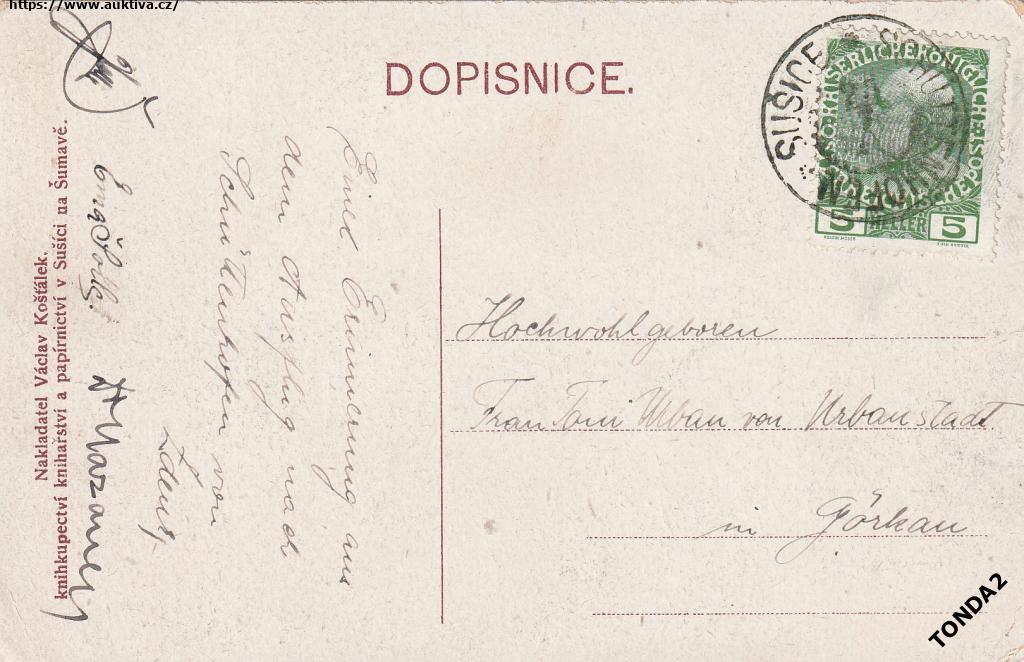 https://www.auktiva.cz/
DOPISNICE.
SUŠICE
KAISERLICHE KÖNIGLICHE
5 HELLER 5
Nakladatel Václav Košťálek,
knihkupectví knihařství a papírnictví v Sušici na Šumavě.
Erinnerung aus
dem Ausflug nach
Schüttenhofen von
Hochwohlgeboren
Frau Toni Urban von Urbanstadt
in Görkau
TONDA2